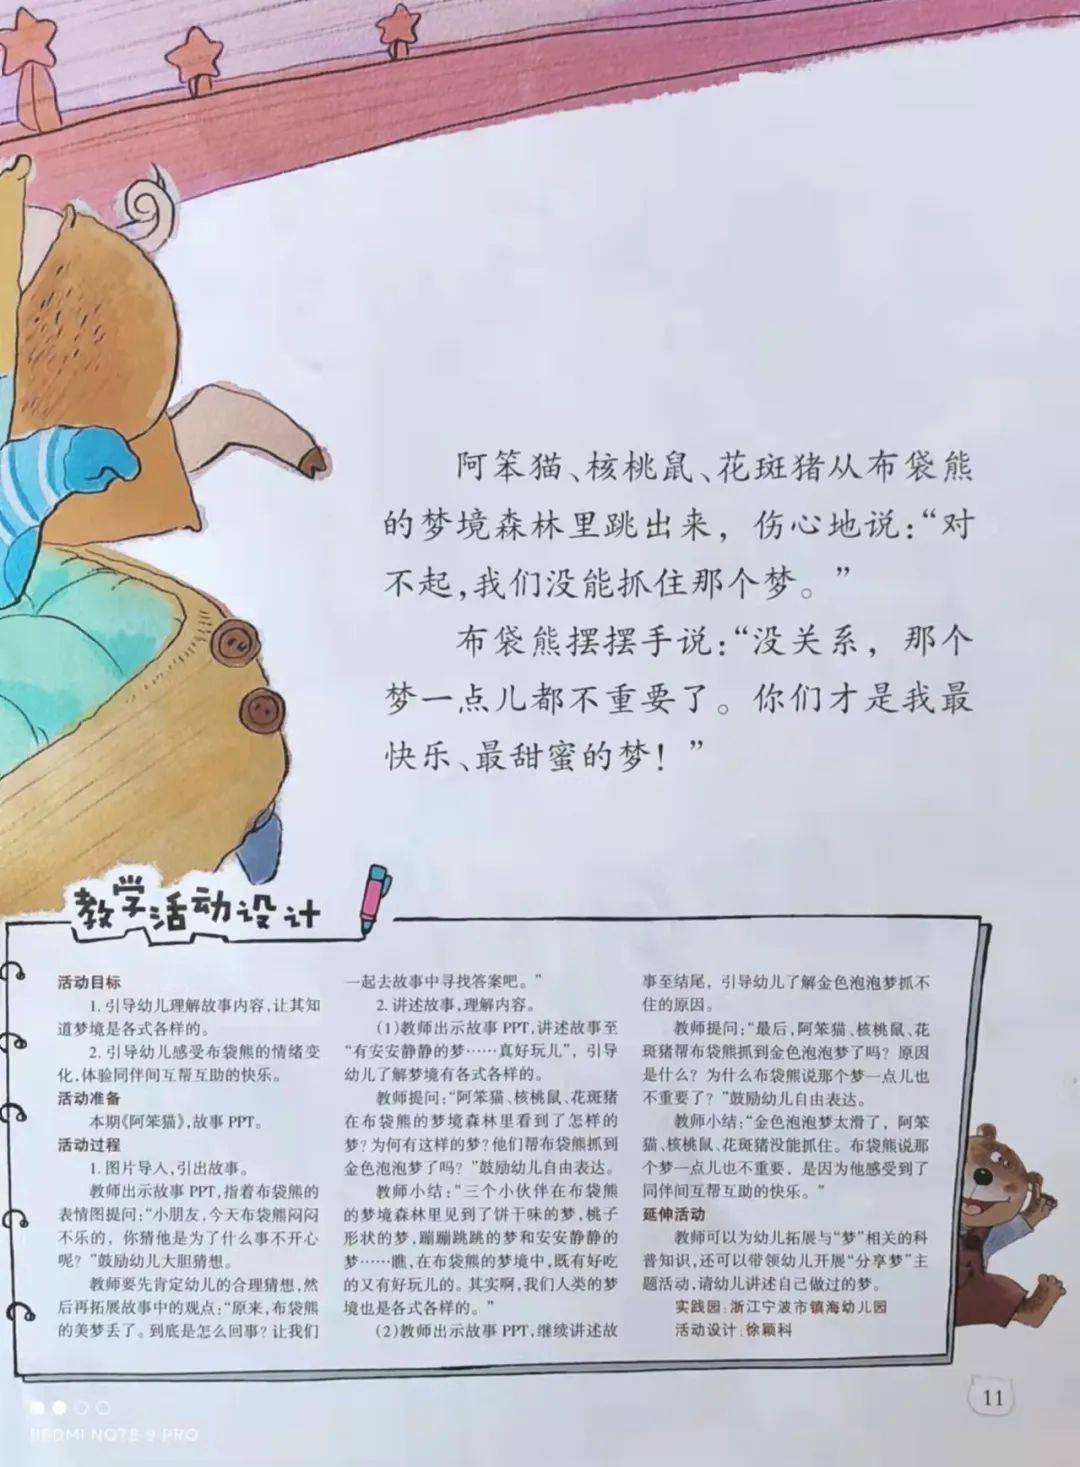 阿笨猫、核桃鼠、花斑猪从布袋熊
的梦境森林里跳出来，伤心地说：“对
不起，我们没能抓住那个梦。”
布袋熊摆摆手说：“没关系，那个
梦一点儿都不重要了。你们才是我最
快乐、最甜蜜的梦！”
教学活动设计
活动目标
1. 引导幼儿理解故事内容，让其知
道梦境是各式各样的。
2. 引导幼儿感受布袋熊的情绪变
化，体验同伴间互帮互助的快乐。
活动准备
本期《阿笨猫》，故事PPT。
活动过程
1. 图片导入，引出故事。
教师出示故事PPT，指着布袋熊的
表情图提问：“小朋友，今天布袋熊闷闷
不乐的，你猜他是为了什么事不开心
呢？”鼓励幼儿大胆猜想。
教师要先肯定幼儿的合理猜想，然
后再拓展故事中的观点：“原来，布袋熊
的美梦丢了。到底是怎么回事？让我们
一起去故事中寻找答案吧。”
2. 讲述故事，理解内容。
(1)教师出示故事PPT，讲述故事至
“有安安静静的梦……真好玩儿”，引导
幼儿了解梦境有各式各样的。
教师提问：“阿笨猫、核桃鼠、花斑猪
在布袋熊的梦境森林里看到了怎样的
梦？为何有这样的梦？他们帮布袋熊抓到
金色泡泡梦了吗？”鼓励幼儿自由表达。
教师小结：“三个小伙伴在布袋熊
的梦境森林里见到了饼干味的梦，桃子
形状的梦，蹦蹦跳跳的梦和安安静静的
梦……瞧，在布袋熊的梦境中，既有好吃
的又有好玩儿的。其实啊，我们人类的梦
境也是各式各样的。”
(2)教师出示故事PPT，继续讲述故
事至结尾，引导幼儿了解金色泡泡梦抓不
住的原因。
教师提问：“最后，阿笨猫、核桃鼠、花
斑猪帮布袋熊抓到金色泡泡梦了吗？原因
是什么？为什么布袋熊说那个梦一点儿也
不重要了？”鼓励幼儿自由表达。
教师小结：“金色泡泡梦太滑了，阿笨
猫、核桃鼠、花斑猪没能抓住。布袋熊说那
个梦一点儿也不重要，是因为他感受到了
同伴间互帮互助的快乐。”
延伸活动
教师可以为幼儿拓展与“梦”相关的科
普知识，还可以带领幼儿开展“分享梦”主
题活动，请幼儿讲述自己做过的梦。
实践园：浙江宁波市镇海幼儿园
活动设计：徐颖科
11
REDMI NOTE 9 PRO